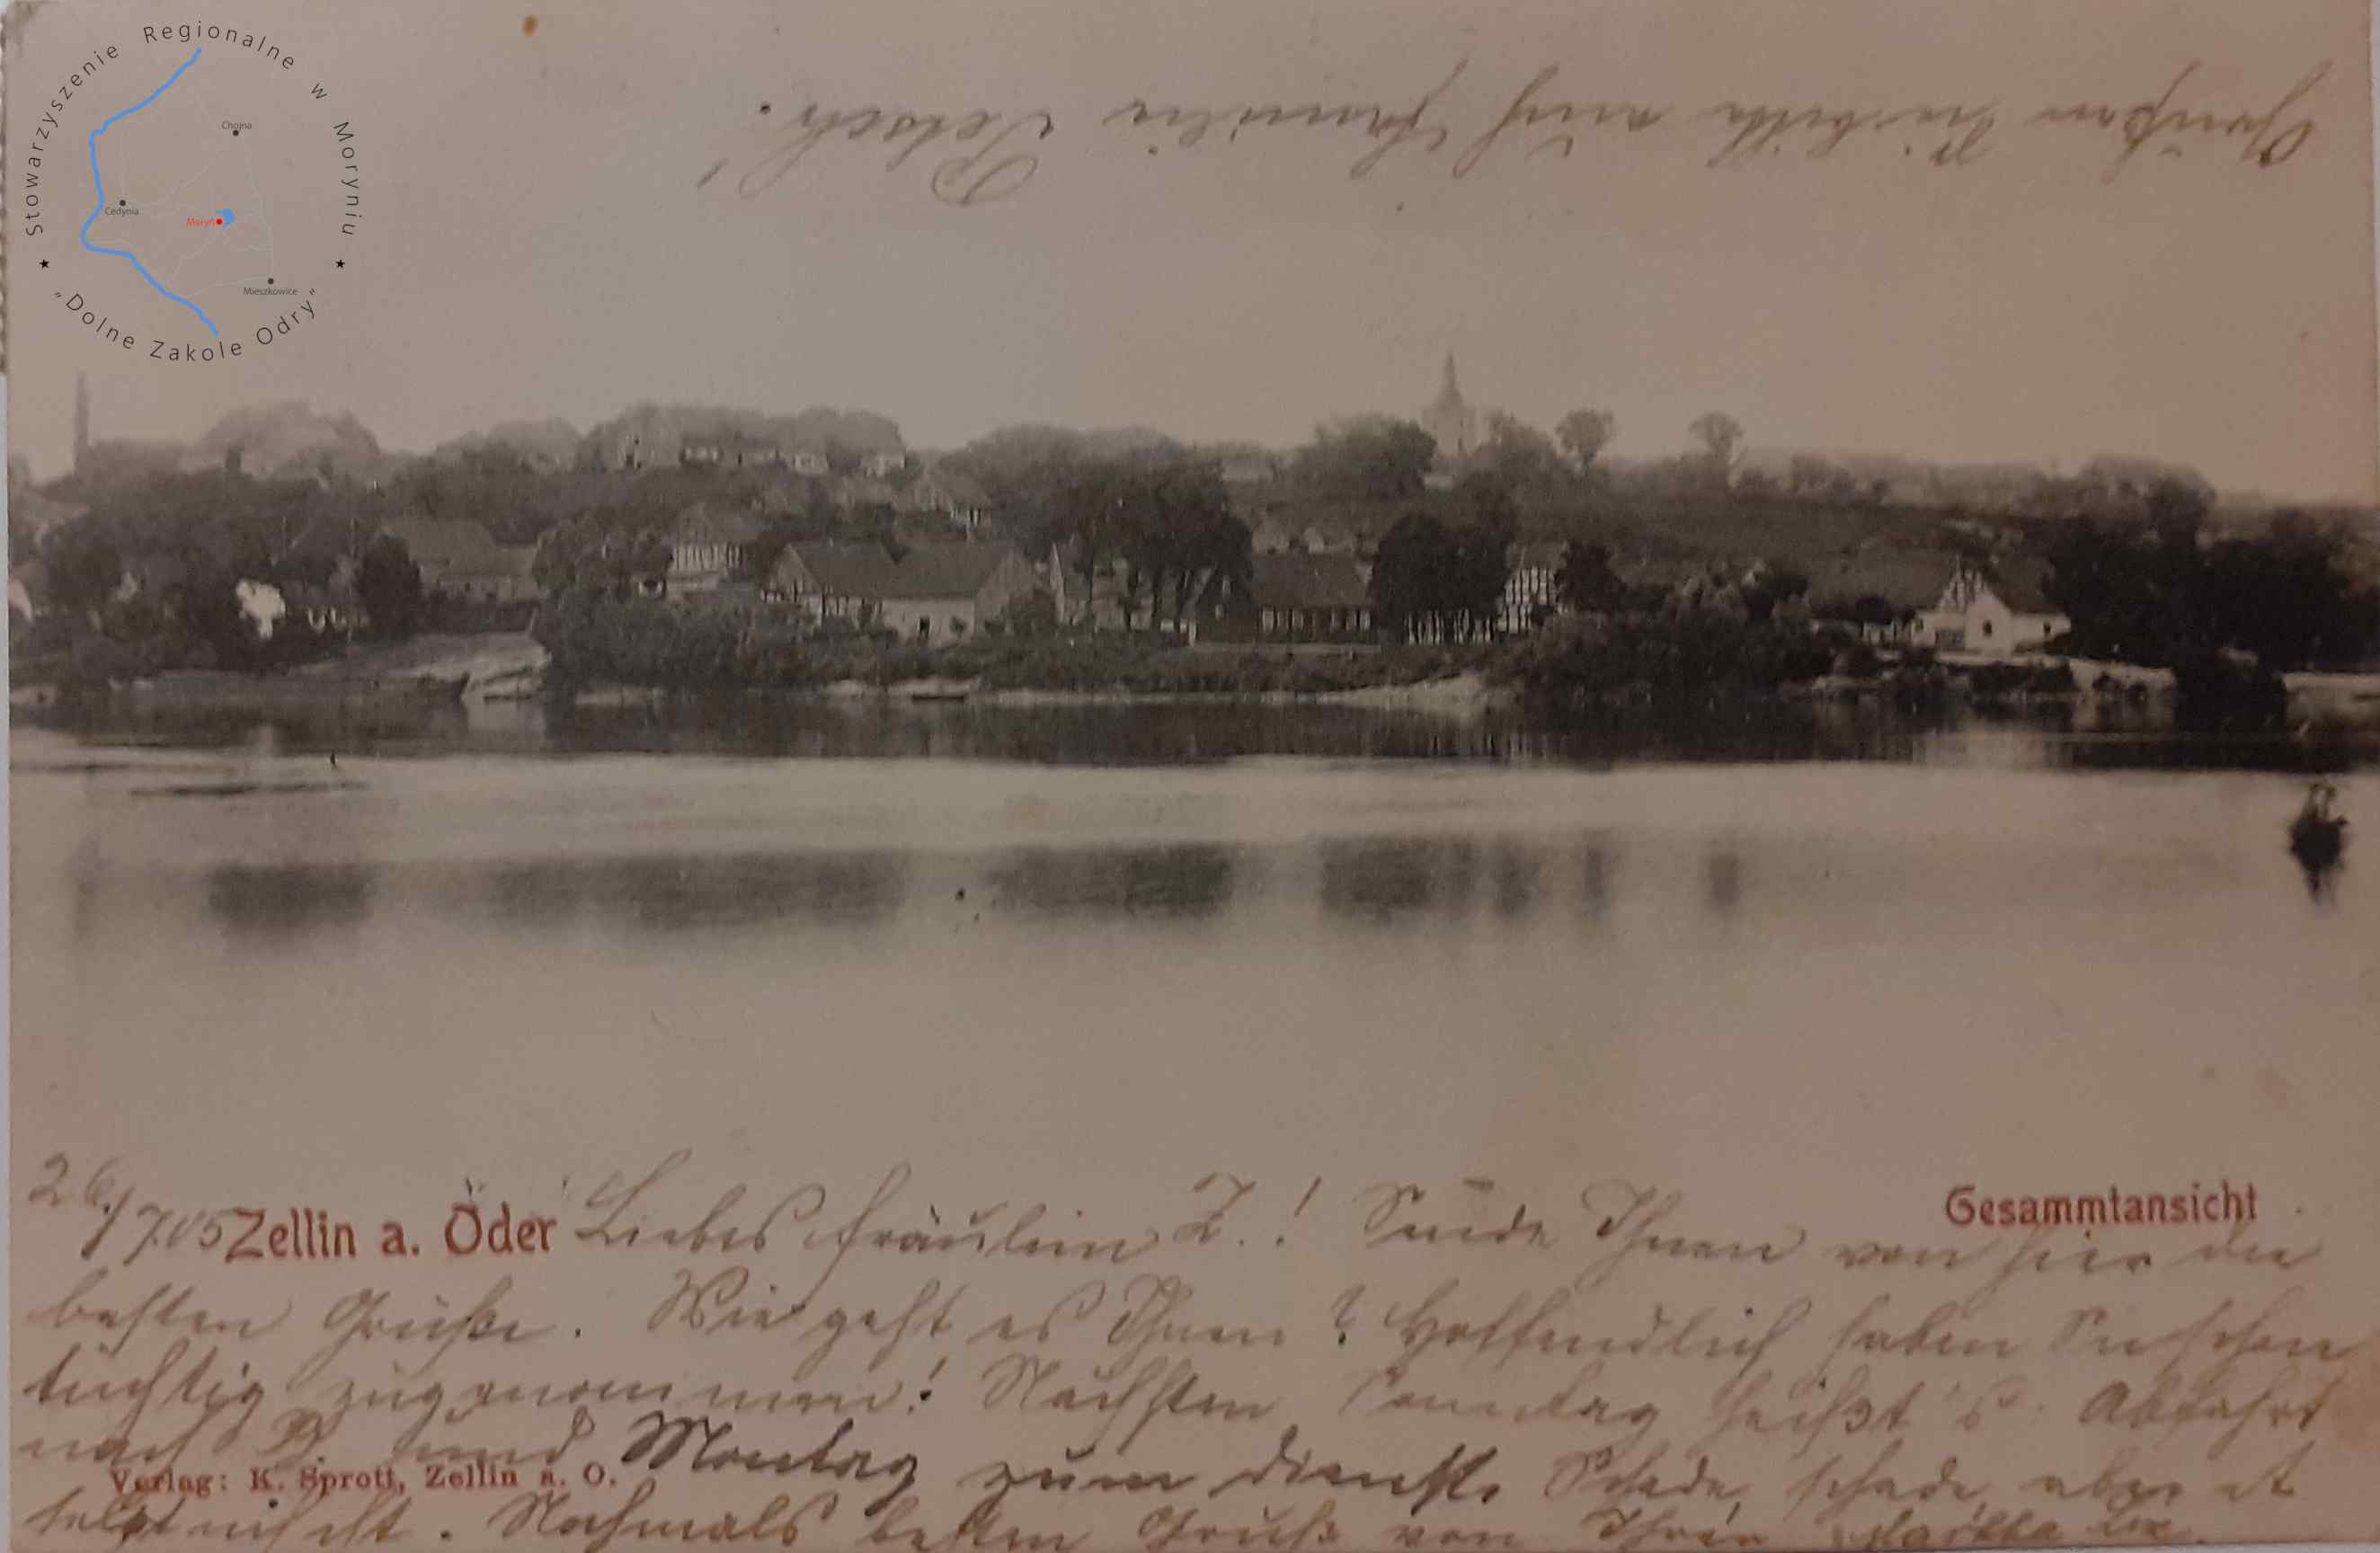 Stowarzyszenie Regionalne w Moryniu
★ „Dolne Zakole Odry” ★
Chojna
Cedynia
Moryń
Mieszkowice
Grüßen Sie bitte auch Familie Petsch!
26/7.05 Zellin a. Oder Liebes Fräulein Z.! Sende Ihnen von hier die
Gesammtansicht
besten Grüße. Wie geht es Ihnen? Hoffendlich haben Sie schon
tüchtig zugenommen! Nächsten Sonntag heißt's: Abfahrt
nach B. und Montag zum Dienst. Schade, schade, aber et
Verlag: K. Sprott, Zellin a. O.
helpt nich. Nochmals besten Gruß von Ihrer Martha